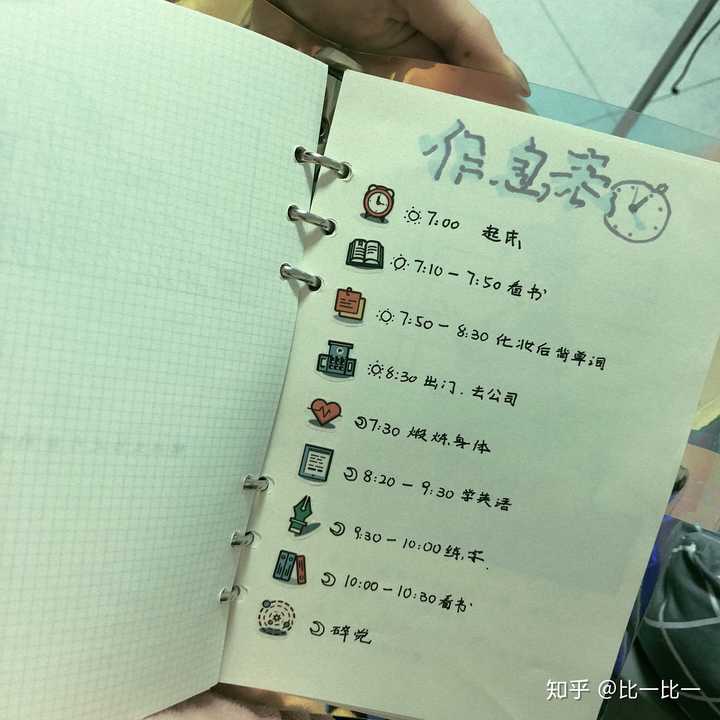 作息表
7:00 起床
7:10-7:50 看书
7:50-8:30 化妆后背单词
8:30 出门.去公司
7:30 煅炼身体
8:20-9:30 学英语
9:30-10:00 练字.
10:00-10:30 看书
碎觉
知乎 @比一比一